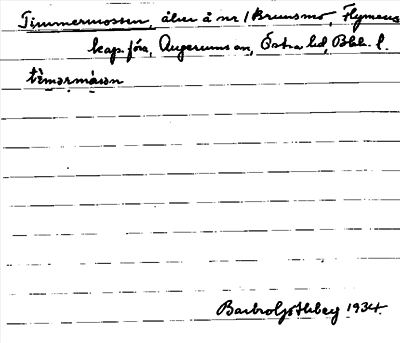 Timmermossen, åker å nr 1 Brunsmo, Flymens
kap. förs, Augerums sn, Östra hd, Blek. l.
tìmərmåsən
Barbro Ljötheberg 1934.